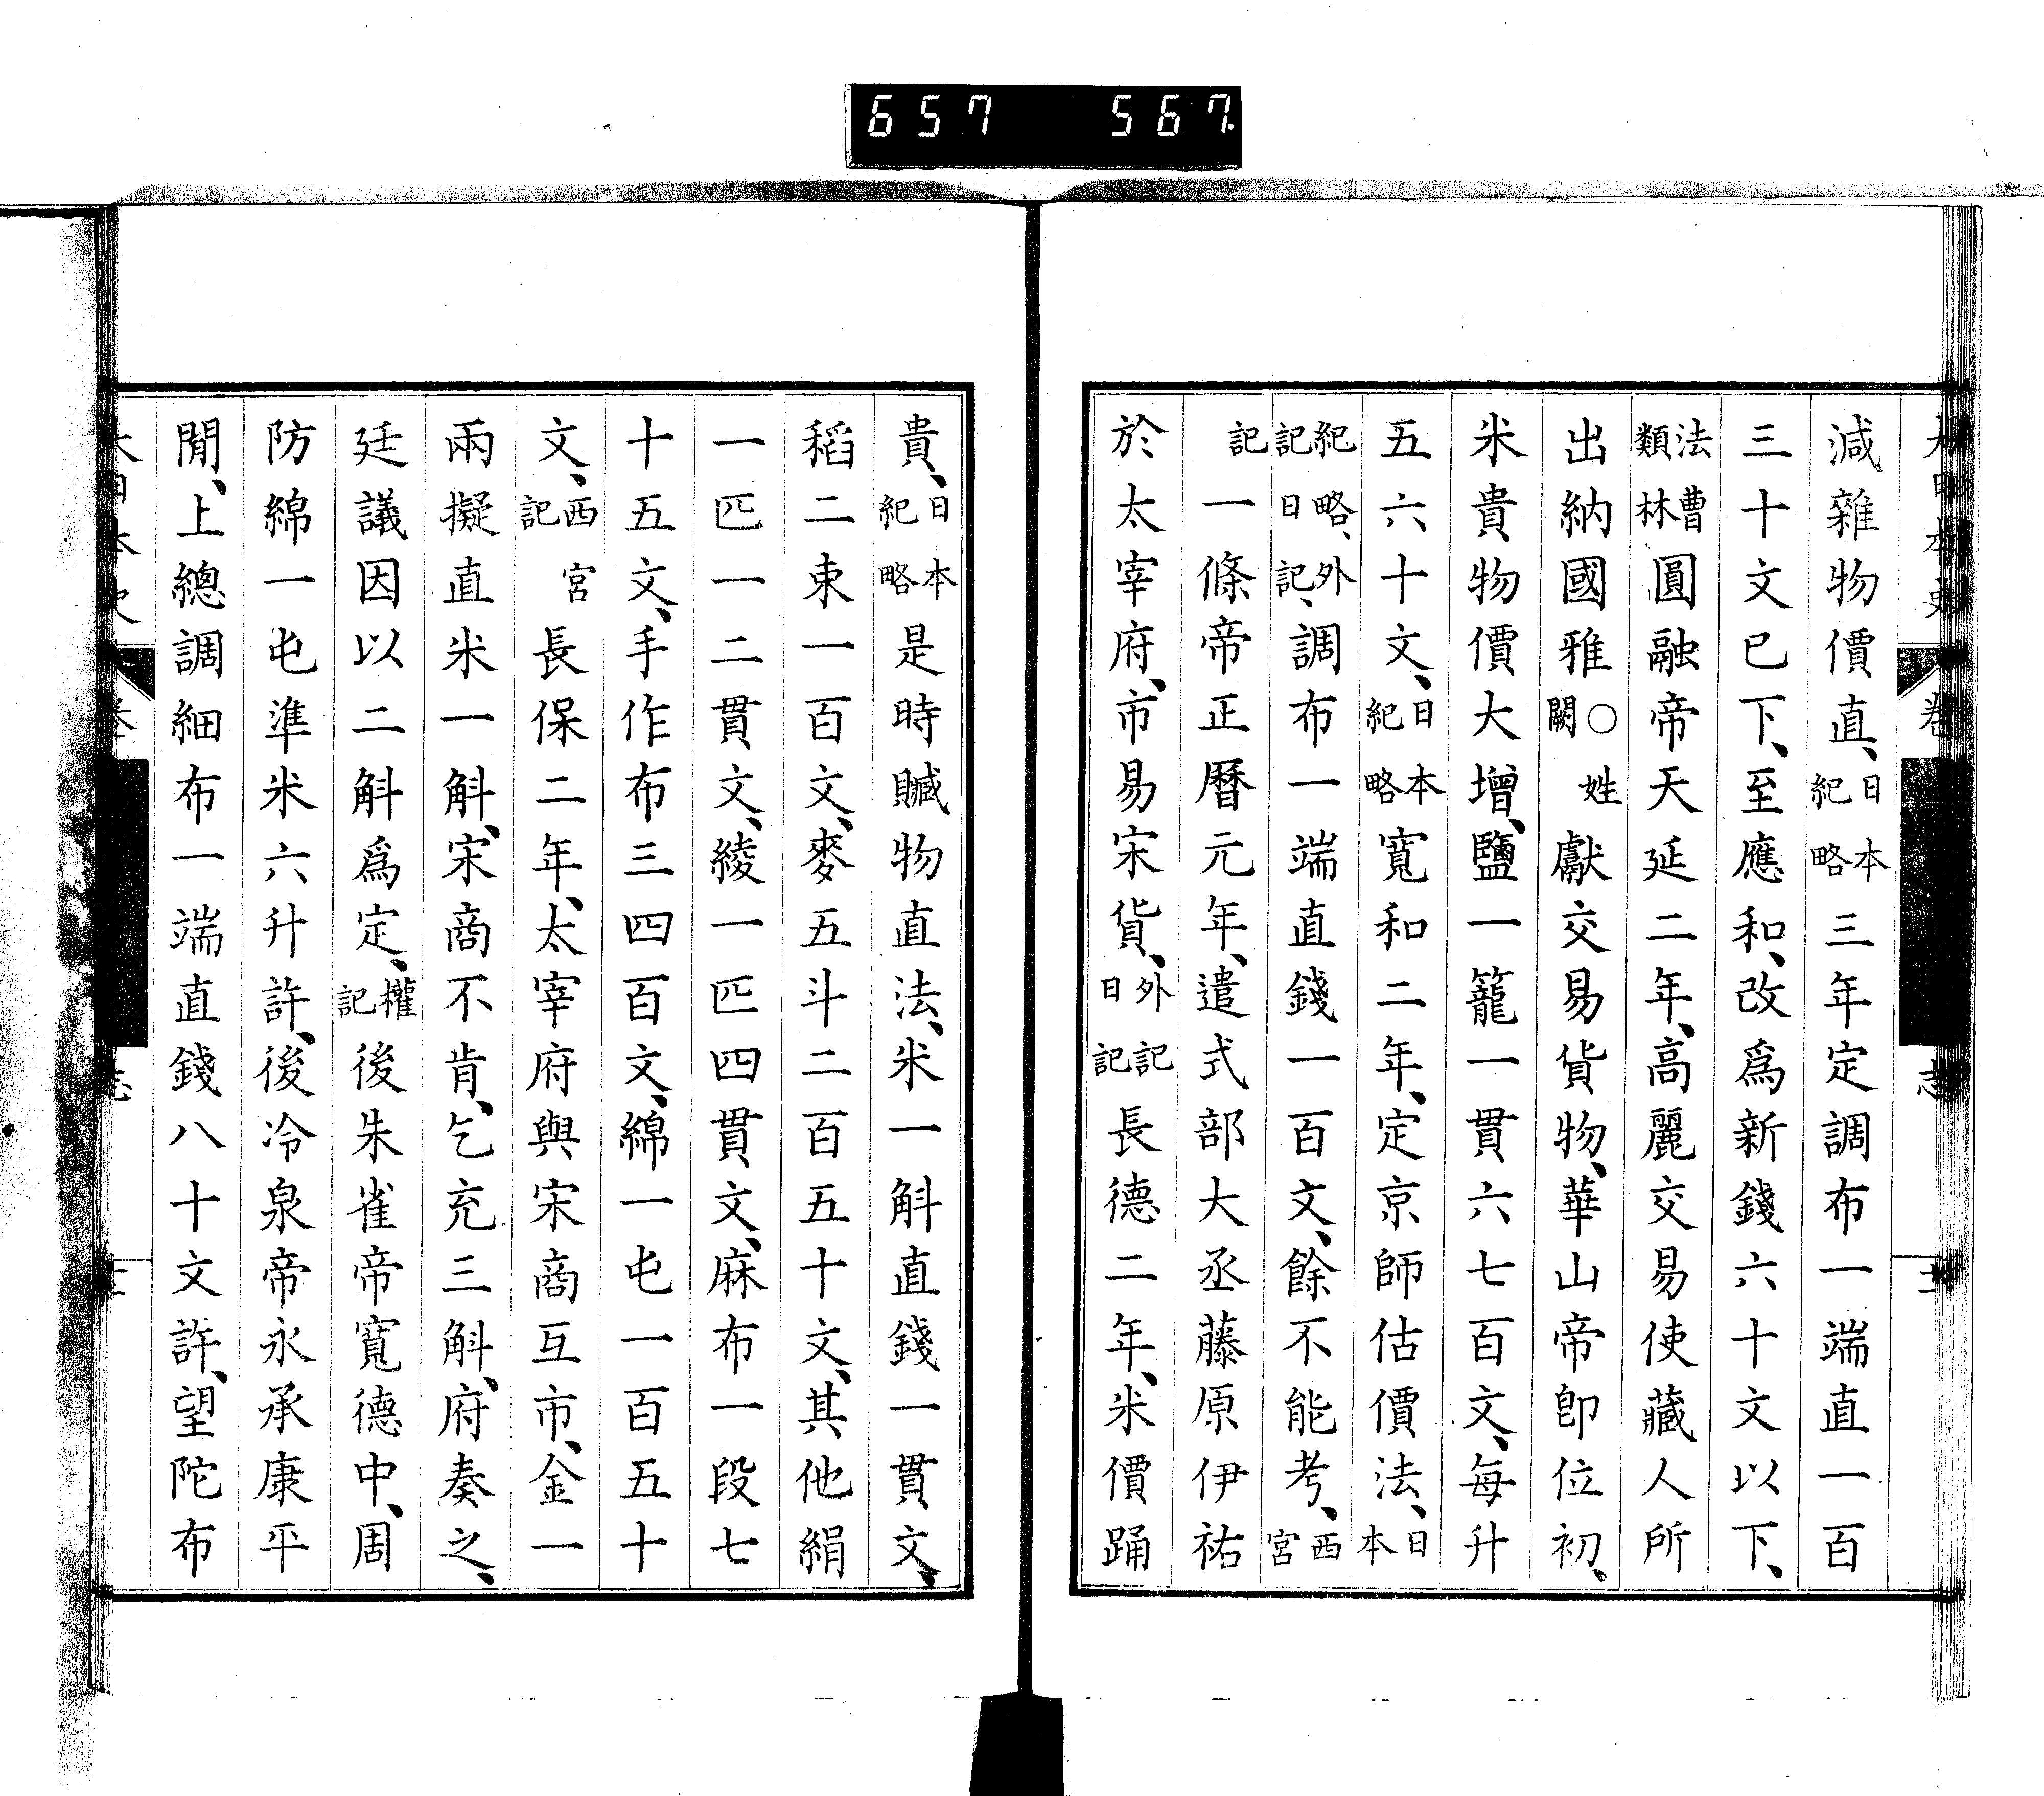 657 567.
減雜物價直、日本紀略三年定調布一端直一百
三十文已下、至應和、改爲新錢六十文以下、
法曹類林圓融帝天延二年、高麗交易使藏人所
出納國雅○姓闕獻交易貨物、華山帝卽位初、
米貴物價大增、鹽一籠一貫六七百文、每升
五六十文、日本紀略寬和二年、定京師估價法、日本
紀略、外記日記、調布一端直錢一百文、餘不能考、西宮
記一條帝正曆元年、遣式部大丞藤原伊祐
於太宰府、市易宋貨、外記日記長德二年、米價踊
貴、日本紀略是時贓物直法、米一斛直錢一貫文、
稻二束一百文、麥五斗二百五十文、其他絹
一匹一二貫文、綾一匹四貫文、麻布一段七
十五文、手作布三四百文、綿一屯一百五十
文、西宮記長保二年、太宰府與宋商互市、金一
兩擬直米一斛、宋商不肯、乞充三斛、府奏之、
廷議因以二斛爲定、權記後朱雀帝寬德中、周
防綿一屯準米六升許、後冷泉帝永承康平
閒、上總調細布一端直錢八十文許、望陀布